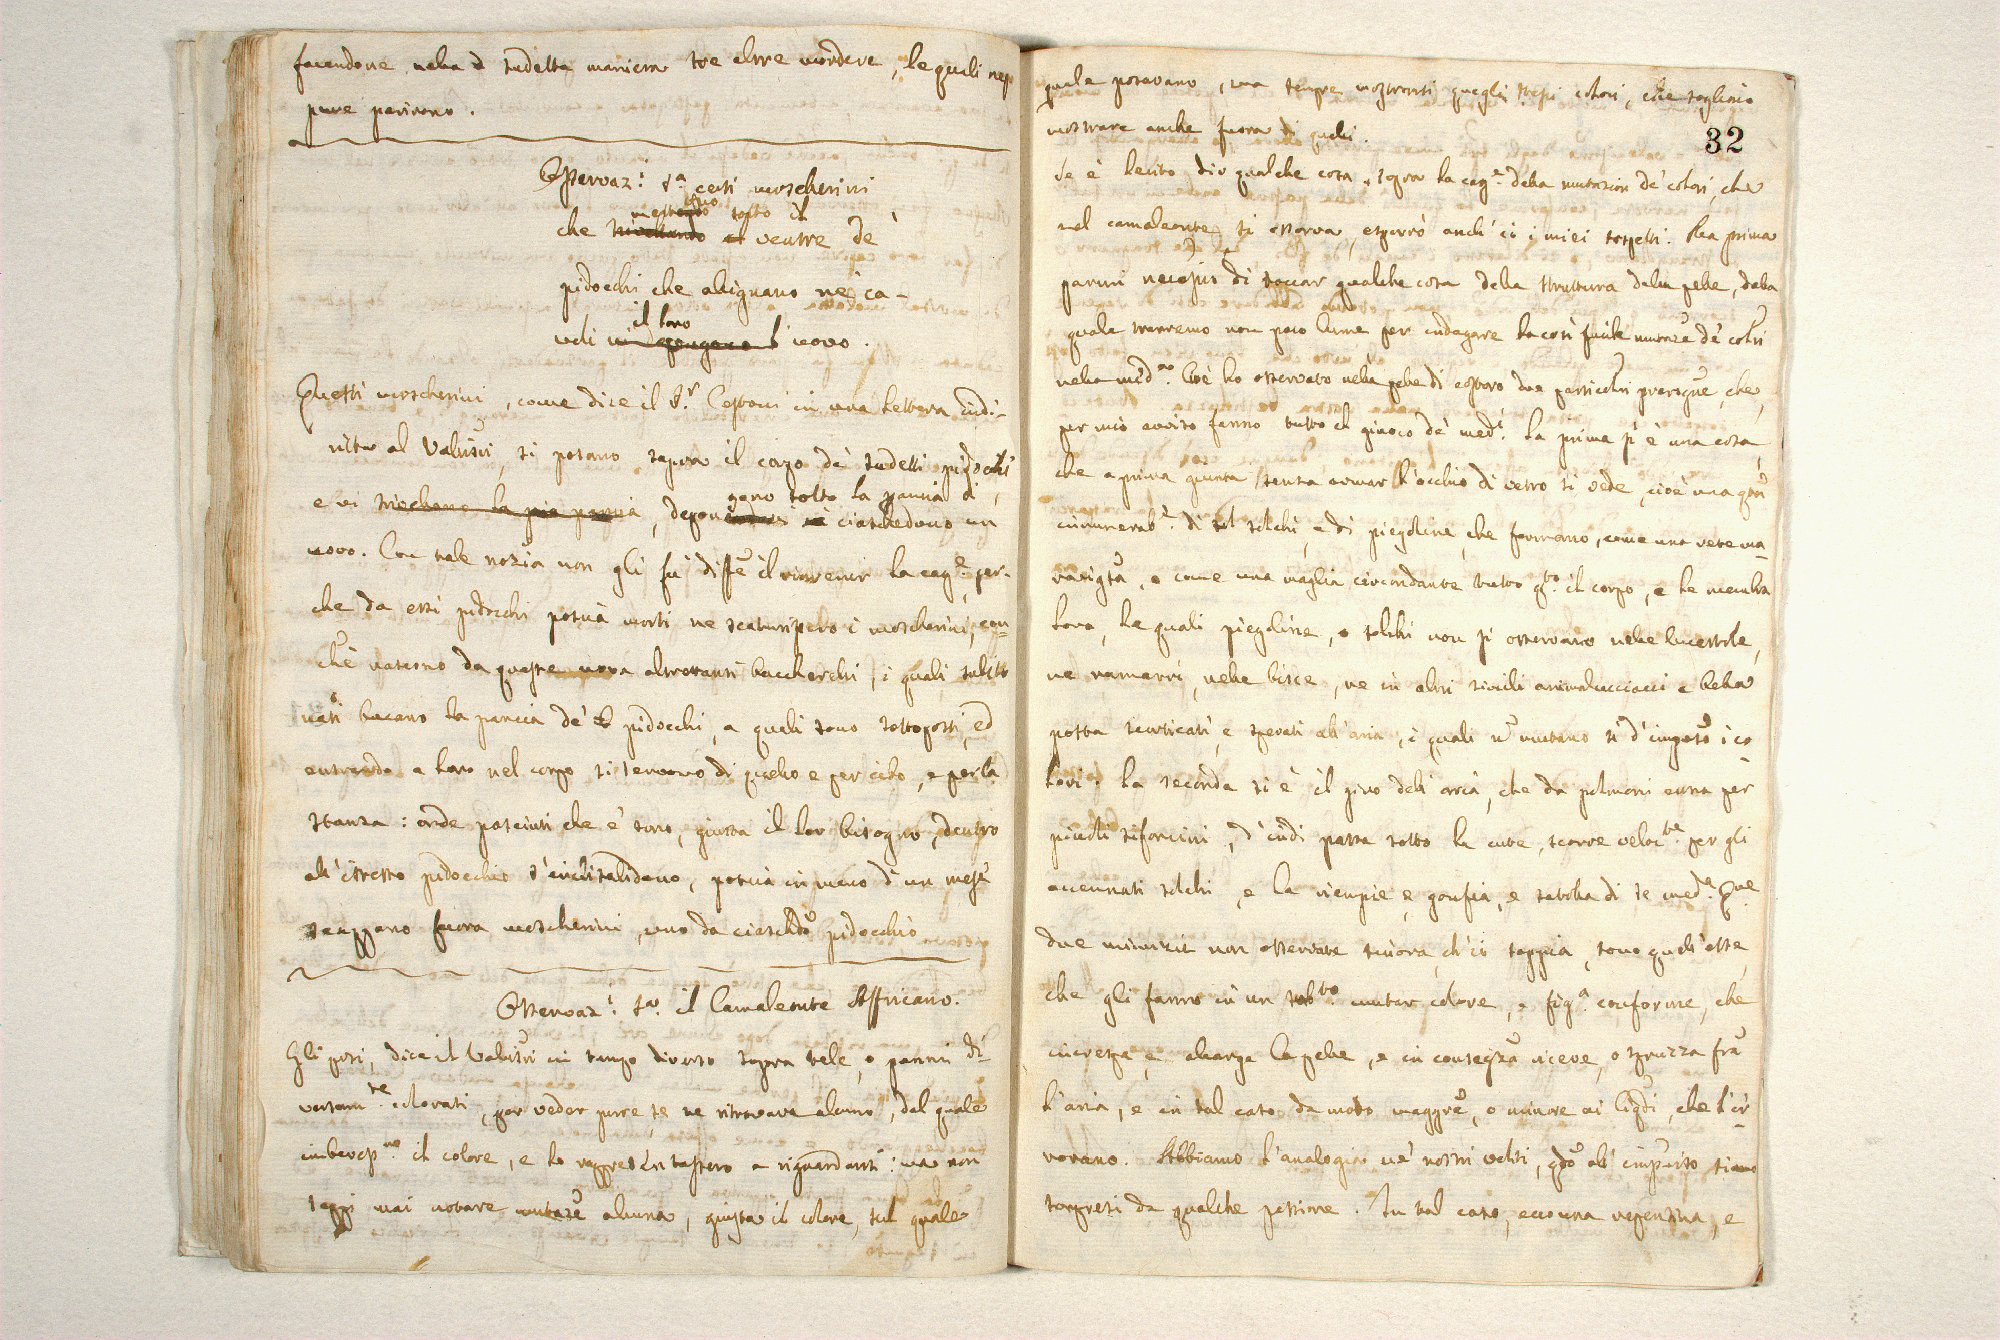 facendone nella sudetta maniera tre altre mordere, le quali nep
pure perirono.
Osservaz.i s.a certi moscherini
che mettono sotto il ventre de'
pidocchi che alignano ne' ca-
voli il loro uovo.
Questi moscherini, come dice il S.r Cestoni in una lettera indi-
ritta al Valisn.i, si posano sopra il corpo de' sudetti pidochi
e vi ficchano la pancia, depongono sotto la pancia di ciaschedono un
uovo. Con tale notizia non gli fu diffile il rinvenir la cag.e, per-
che da essi pidocchi poscia morti ne scaturissero i moscherini, con-
che nascono da queste uova altrettanti baccherelli, i quali subito
nati bucano la pancia de' pidocchi, a quali sono sottoposti, ed
entrando a loro nel corpo si servono di quello e per cibo, e per la
stanza: onde pasciuti che e' sono, giusta il lor bisogno, dentro
all'istesso pidocchio s'incrisalidano, poscia in meno d'un mese
scappano fuora moscherini, uno da ciaschd.o pidocchio
Osservaz.i s.a il Camaleonte Affricano.
Gli posi, dice il Valisn.i in tempo diverso sopra tele, o panni di-
versam.te colorati, per veder pure, se ne ritrovava alcuno, dal quale
imbevess.no il colore, e lo rappresentassero a riguardanti: ma non
seppi mai notare mutaz.e alcuna, giusta il colore, sul quale
quale posavano, ma sempre mostrarsi quegli stessi colori, che sogliono
mostrare anche fuora di quelli.
32
Se è lecito dir qualche cosa sopra la cag.e della mutazion de' colori, che
nel camaleonte si osserva, esporrò anch'io i miei sospetti. Ma prima
parmi necess.o di toccar qualche cosa della struttura della pelle, dalla
quale trarremo non poco lume per indagare la così facile mutaz.e de' colori
nella med.ma. Cioè ho osservato nella pelle di costoro due particolari prerogve, che,
per mio avviso fanno tutto il giuoco de' med.i. La prima si è una cosa,
che a prima giunta senza armar l'occhio di vetro si vede, cioè una qtà
innumerab.e di solchi, e di piegoline, che formano, come una rete ma-
ravigsa, e come una maglia circondante tutto q.to il corpo, e le membra
loro, le quali piegoline, o solchi non si osservano nelle lucertole,
ne ramarri, nelle bisce, ne in altri simili animalucciacci a bella
posta scorticati, e sperati all'aria, i quali n mutano sì d'improvo i co
lori. La seconda si è il giro dell'aria, che da polmoni entra per
piccoli sifoncini, e d'indi passa sotto la cute, scorre veloc.te per gli
accennati solchi, e la riempie e gonfia, e satolla di se med.a. Q.te
due minuzie non osservate sinora, ch'io sappia, sono quell'esse,
che gli fanno in un sub.to mutar colore, e fig.a conforme, che
increspa, e allarga la pelle, e in consegza riceve, o spruzza fra
l'aria, e in tal caso da moto maggre, o minore ai liqdi, che l'ir-
rorano. Abbiamo l'analogia ne' nostri volti, qdo all'impso siamo
sorpresi da qualche passione. In tal caso, ecco una repentina, e